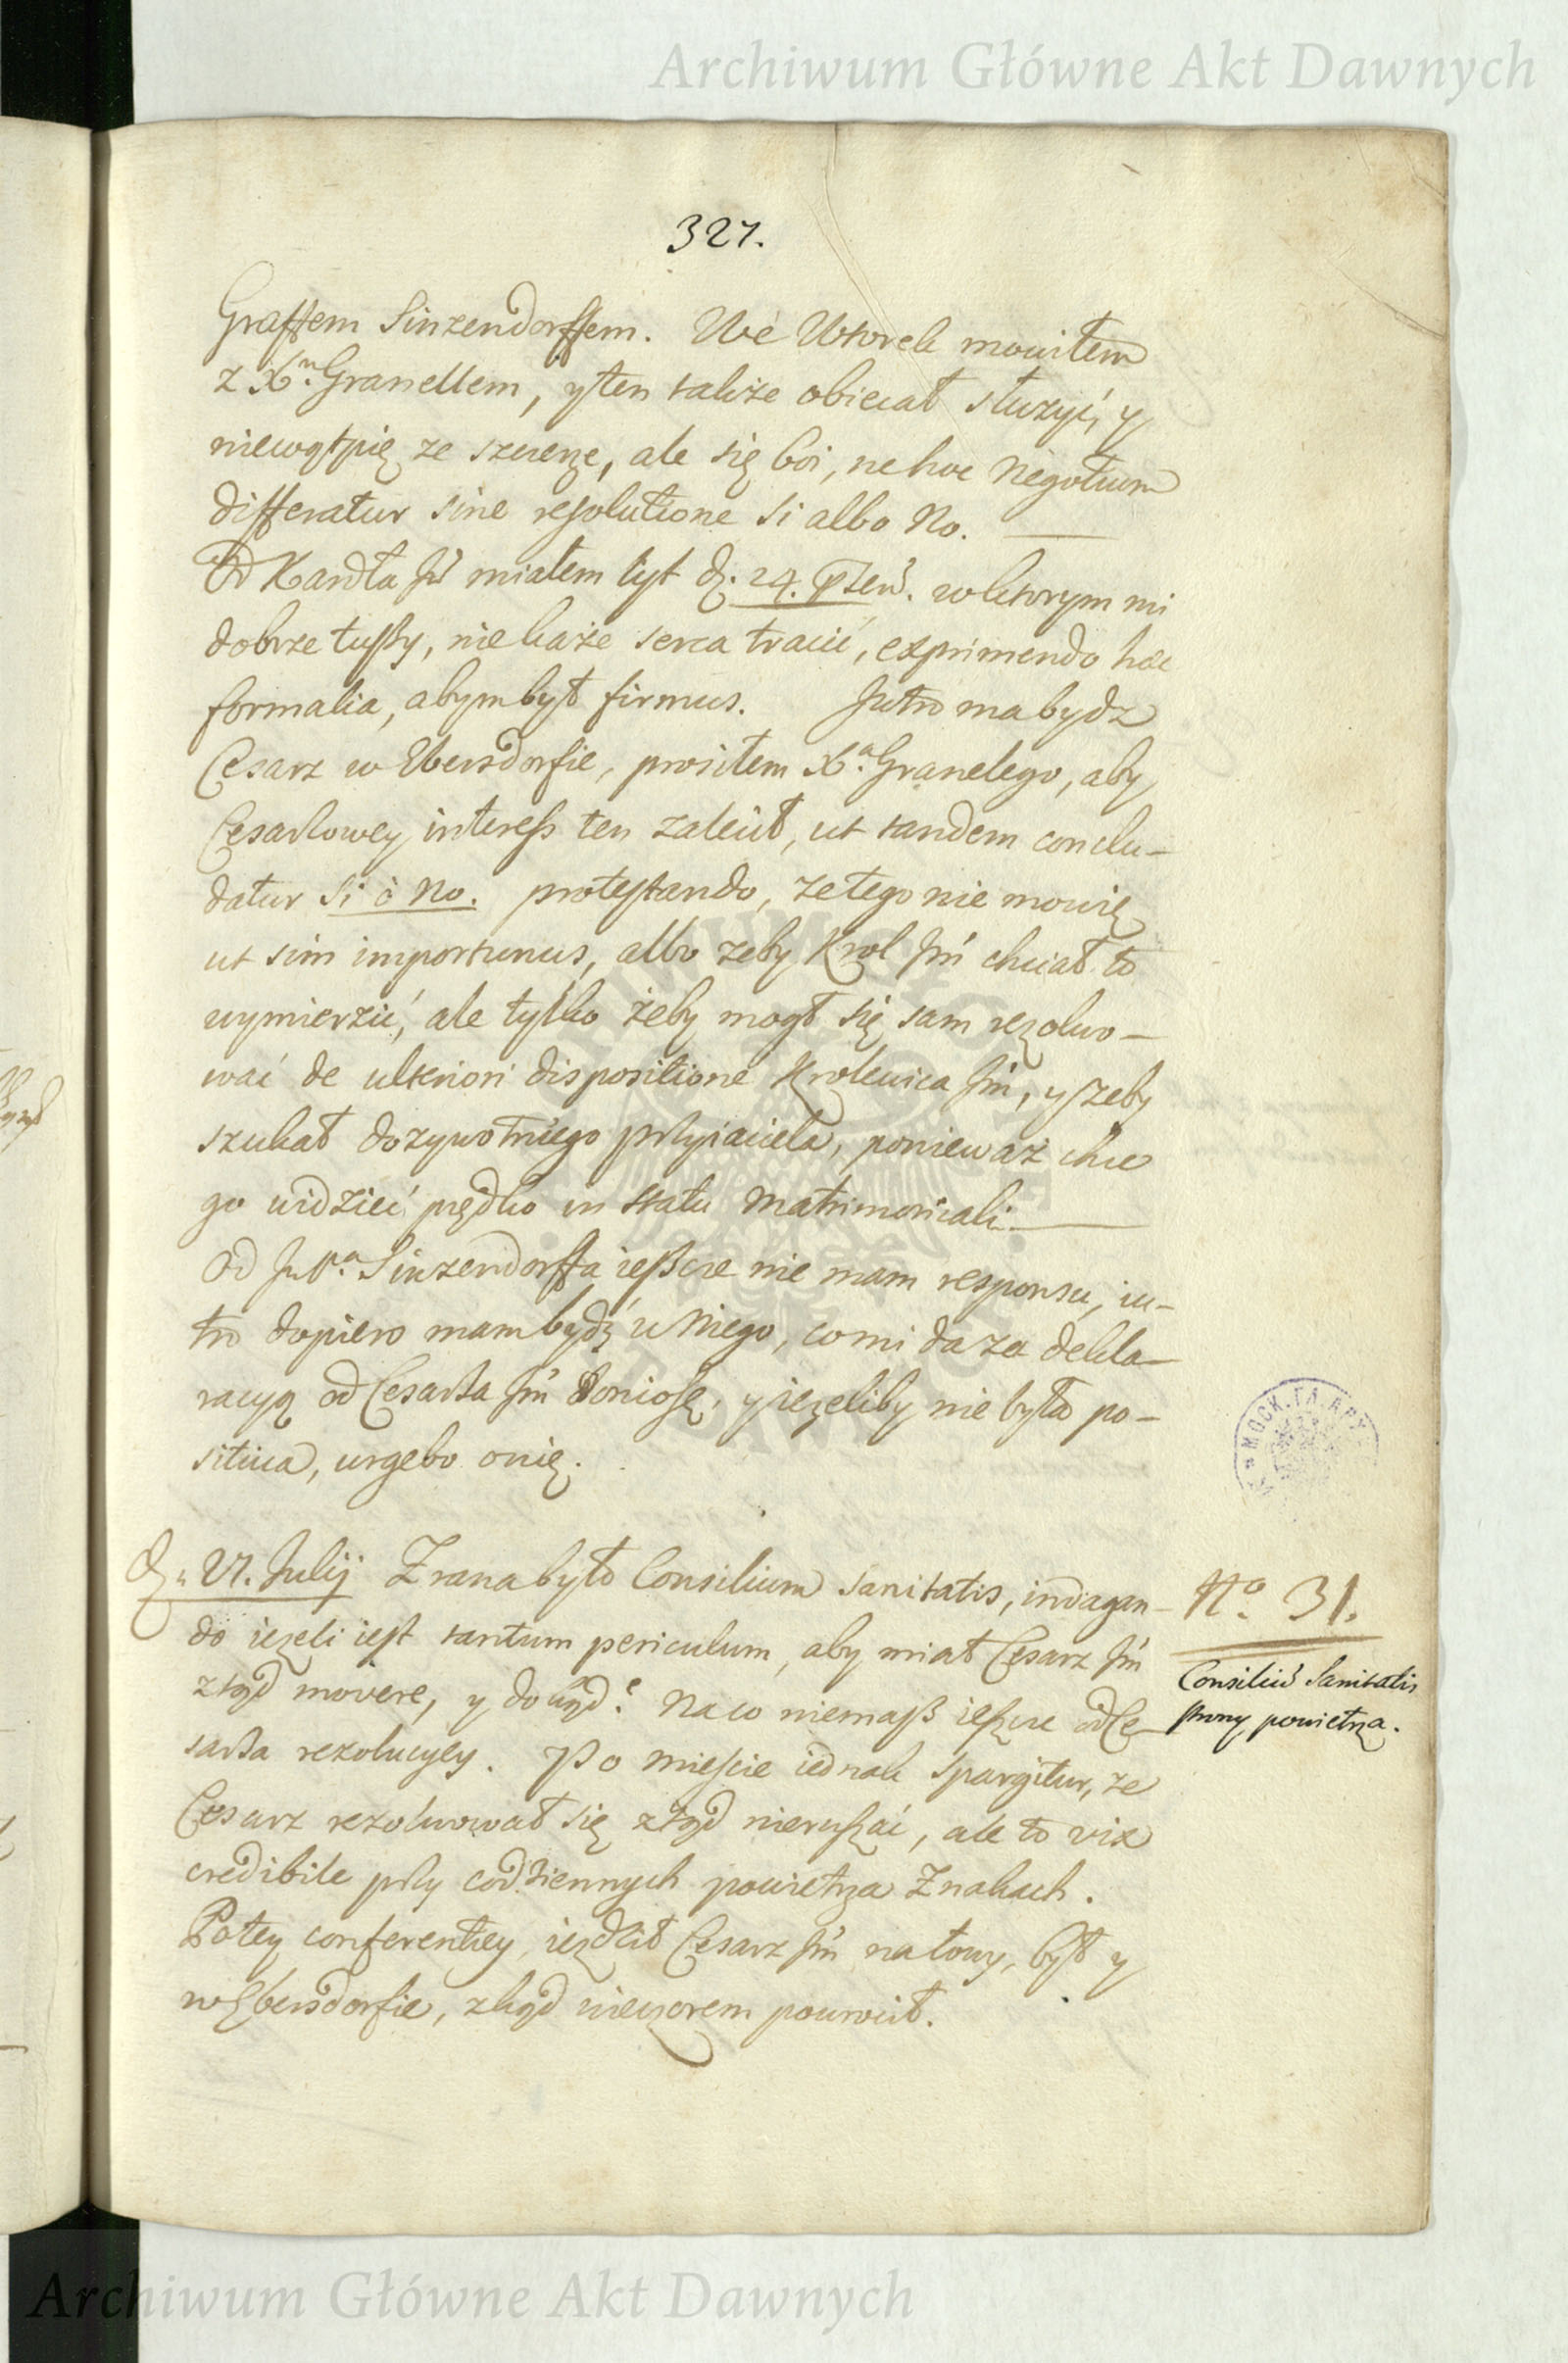 Archiwum Główne Akt Dawnych
327.
Graffem Sinzendorffem. We Wtorek mowiłem
z Xm. Granellem, y ten także obiecał służyć, y
niewątpię ze szczerze, ale się boi, ne hoc negotium
differatur sine resolutione si albo No.
Od Kardła Jm̃ miałem list d. 24. Pteris. w ktorym mi
dobrze tuszy, nie każe serca tracić, exprimendo hæc
formalia, abym był firmus. Jutro ma bydz
Cesarz w Ebersdorfie, prosiłem Xa. Granelego, aby
Cesarzowey interess ten zalecił, ut tandem conclu-
datur Si ò No. protestando, ze tego nie mowię
ut sim importunus, albo zeby Krol Jm̃ chciał to
wymierzić, ale tylko żeby mogł się sam rezolwo-
wać de ulteriori dispositione Krolewica Jm̃, y zeby
szukał dozywotniego przyiaciela, poniewaz chce
go widzieć prędko in statu Matrimoniali.
Od Jm Pa. Sinzendorffa ieszcze nie mam responsu, iu-
tro dopiero mam bydź u Niego, co mi da za dekla-
racyą od Cesarza Jm̃ doniosę, y iezeliby nie była po-
sitiva, urgebo onię.
D. 27. Julij Z rana było Consilium Sanitatis, indagan-
do iezeli iest tantum periculum, aby miał Cesarz Jm̃
ztąd movere, y dokąd? Na co niemasz ieszcze od Ce-
sarza rezolucyey. Po mieście iednak spargitur, ze
Cesarz rezolwował się ztąd nieruszać, ale to vix
credibile przy codziennych powietrza Znakach.
Po tey conferentiey, iezdził Cesarz Jm̃ na łowy, był y
w Ebersdorfie, zkąd wieczorem powrocił.
No. 31.
Consiliũ Sanitatis
strony powietrza.
МОСК. ГЛ. АРХ
Archiwum Główne Akt Dawnych